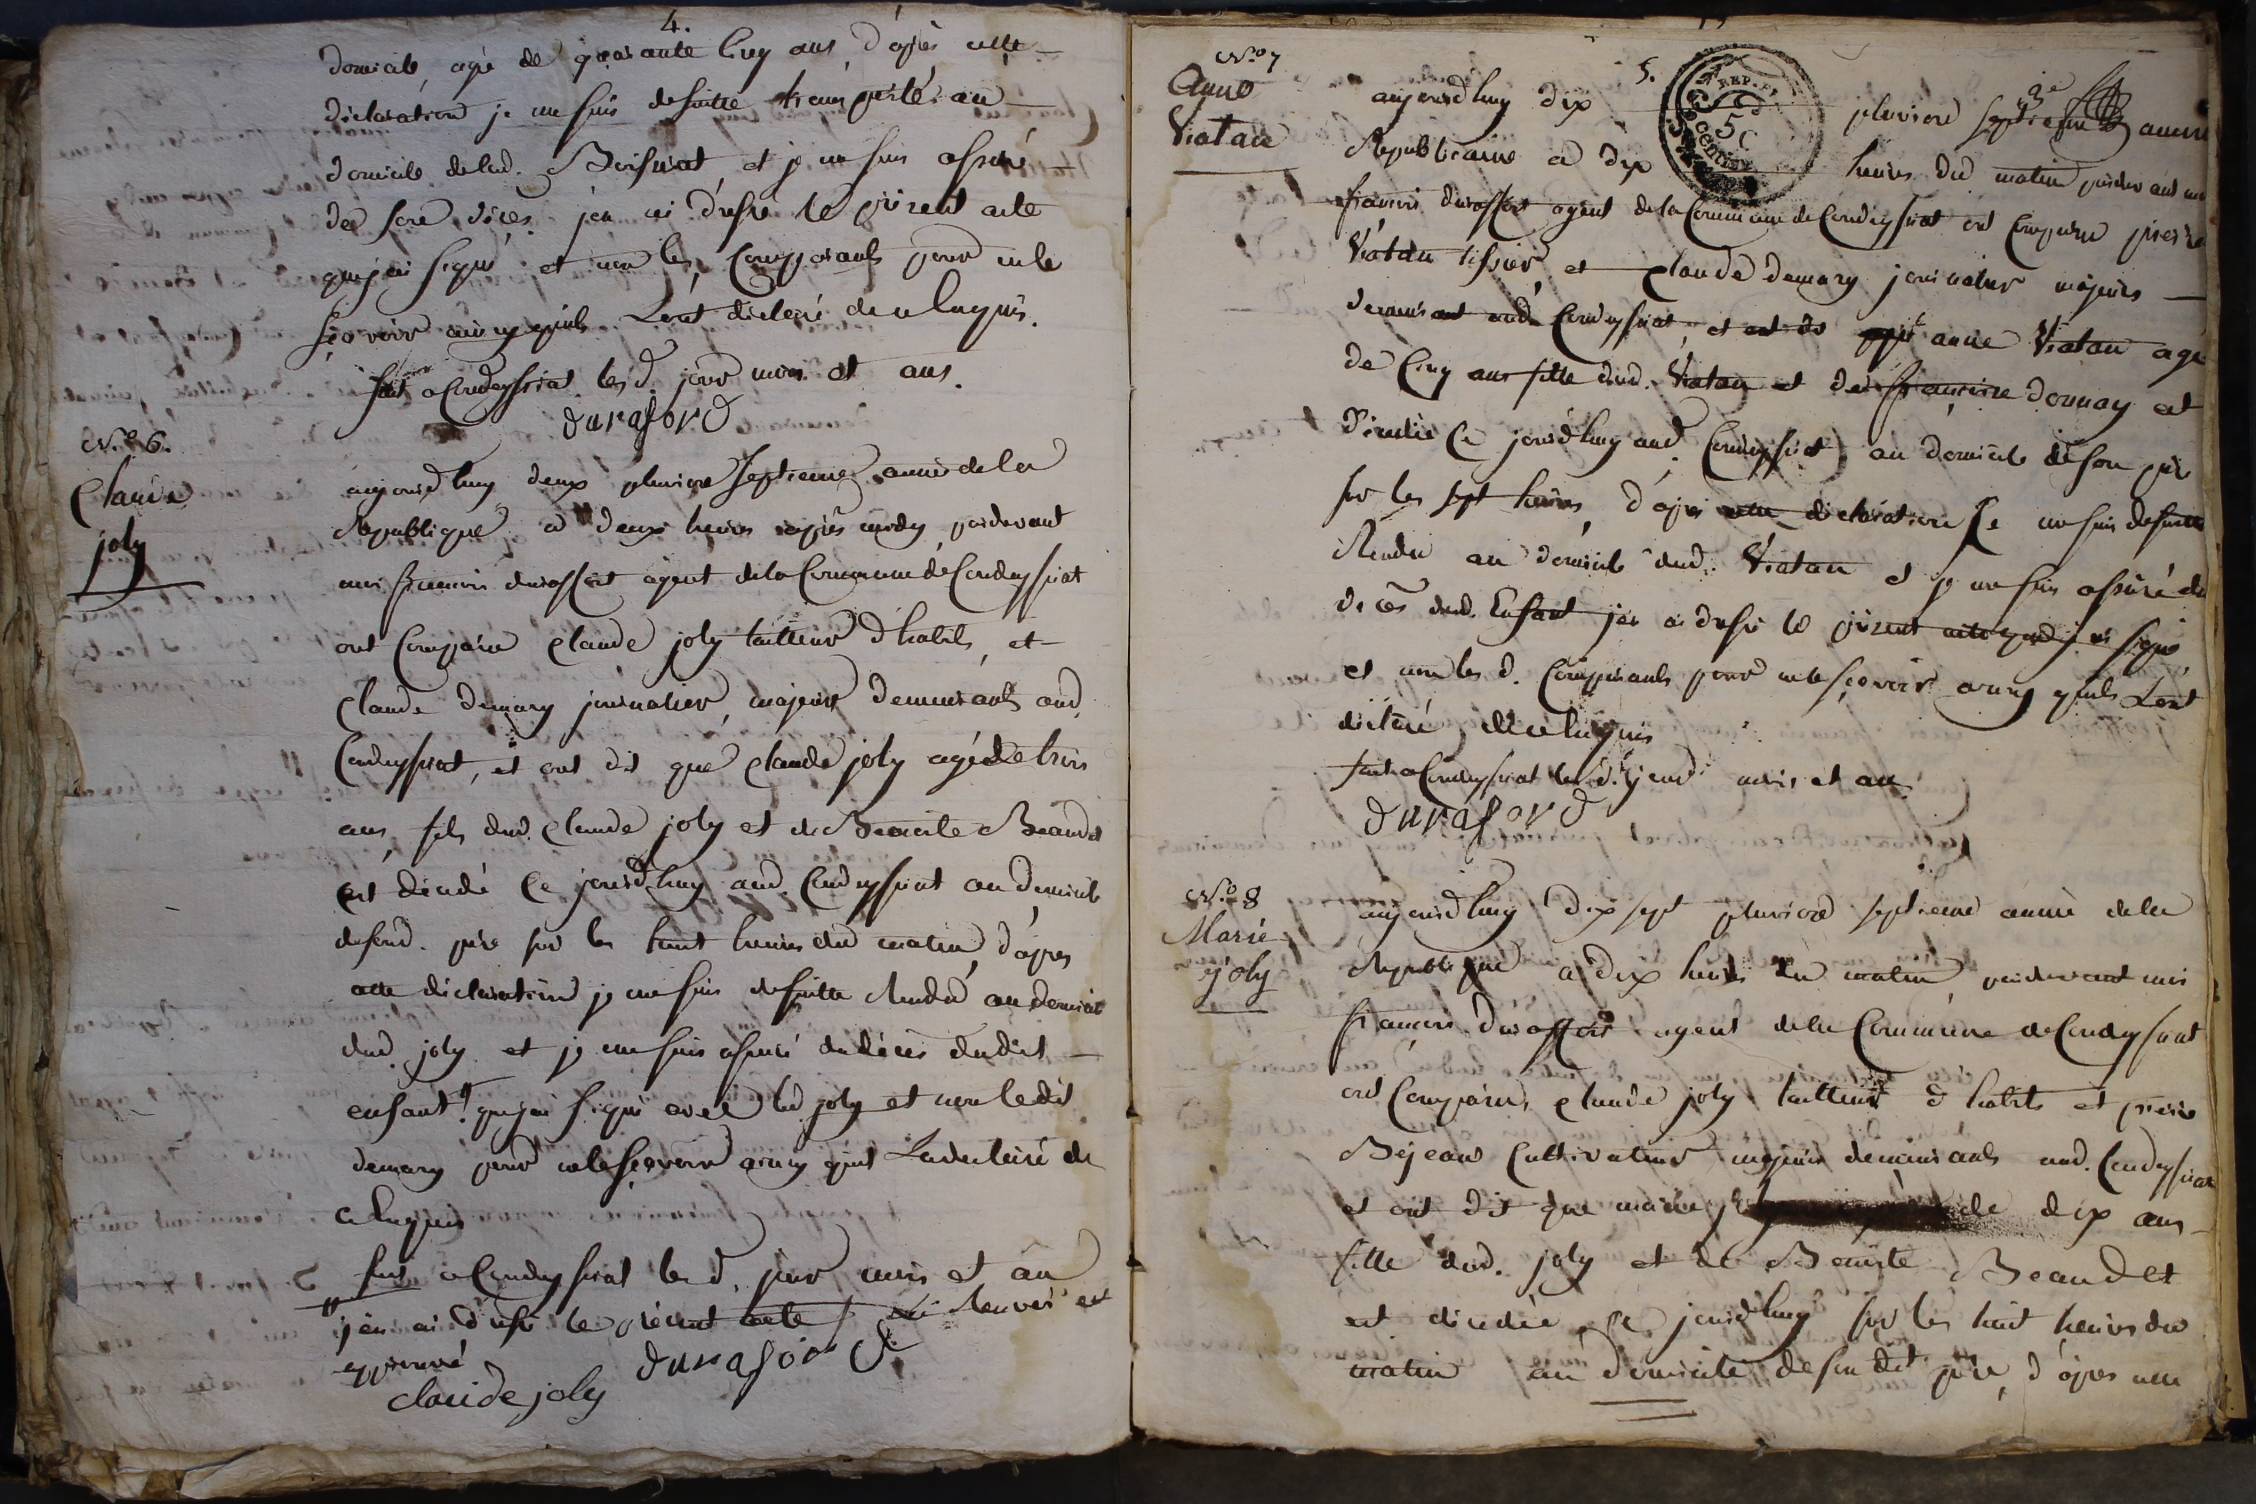 4.
domicile, agé de quarante cinq ans, d'après cette
déclaration je me suis desuitte transporté au
domicile delad. Boissirat et je me suis assuré
de sont déces. j'en ai dressé le présent acte
que j'ai signé et non les Comparants pour ne le
sçavoir ainsy quils L'ont déclaré de ce Enquis.
fait a Condeyssiat les d. jour mois et ans.
duraford
N.o 6.
Claude
joly
aujourd'huy deux pluviose septieme année de la
Republique a deux heures après midy pardevant
moi francois duraffort agent dela Commune de Condeyssiat
ont Comparu Claude joly tailleur d'habits, et
Claude demary journalier, majeurs demeurants aud.
Condeyssiat, et ont dit que Claude joly agé de trois
ans, fils dud. Claude joly et de Benoite Beaudet
est décédé Ce jourd'huy aud. Condeyssiat au domicile
desond. père sur les huit heures du matin, d'apres
cette déclaration je me suis desuitte Rendu au domicile
dud. joly et je me suis assuré du déces dudit
enfant # que j'ai signé avec led joly et non le dit
demary pour ne le sçavoir ainsy quil La déclaré de
ce Enquis
fait a Condeyssiat les d. jour mois et an
# j'en ai dressé le présent acte / Le Renvoi est
approuvé
duraford
Claude joly
N.o 7
Anne
Viatan
5.
REP. F.
5 C
centimes
aujourd'huy dix pluviose septieme année
Republicaine a dix heures du matin pardevant moi
francois duraffort agent dela Commune de Condeyssiat ont Comparu pierre
Viatan tissier et Claude demary journalier majeurs
demeurant aud. Condeyssiat, et ont dit que anne Viatan agé
de Cinq ans fille dud. Viatan et de francoise donnay est
décédée Ce jourd'huy aud. Condeyssiat au domicile de son père
sur les sept heures, d'après cette déclaration Je me suis desuitte
Rendu au domicile dud. Viatan et je me suis assuré du
décès dud. Enfant j'en ai dressé le présent acte que j'ai signé
et non les d. Comparants pour ne le sçavoir ainsy quils L'ont
déclaré de ce Enquis
fait a Condeyssiat les d. jour mois et an.
duraford
N.o 8
Marie
joly
aujourd'huy dix sept pluviose septieme année de la
Republique a dix heures du matin pardevant moi
francois duraffort agent dela Commune de Condeyssiat
ont Comparus Claude joly tailleur d'habits et pierre
Bejean Cultivateur majeurs demeurants aud. Condeyssiat
et ont dit que marie de dix ans
fille dud. joly et de Benoite Beaudet
est décédée ce jourd'huy sur les huit heures du
matin au domicile de son dit père, d'apres cette